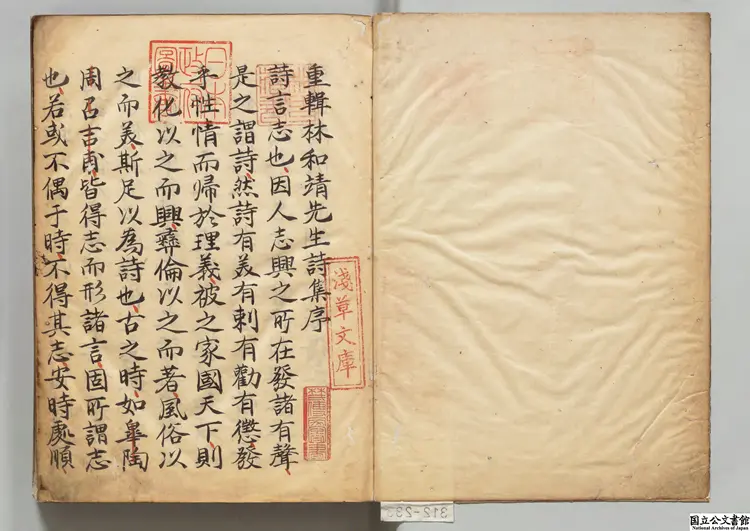 重輯林和靖先生詩集序
詩言志也因人志興之所在發諸有聲
是之謂詩然詩有美有刺有勸有懲發
乎性情而歸於理義被之家國天下則
教化以之而興彝倫以之而著風俗以
之而美斯足以為詩也古之時如皐陶
周召吉甫皆得志而形諸言固所謂志
也若或不偶于時不得其志安時處順
淺草文庫
312-293
国立公文書館
National Archives of Japan